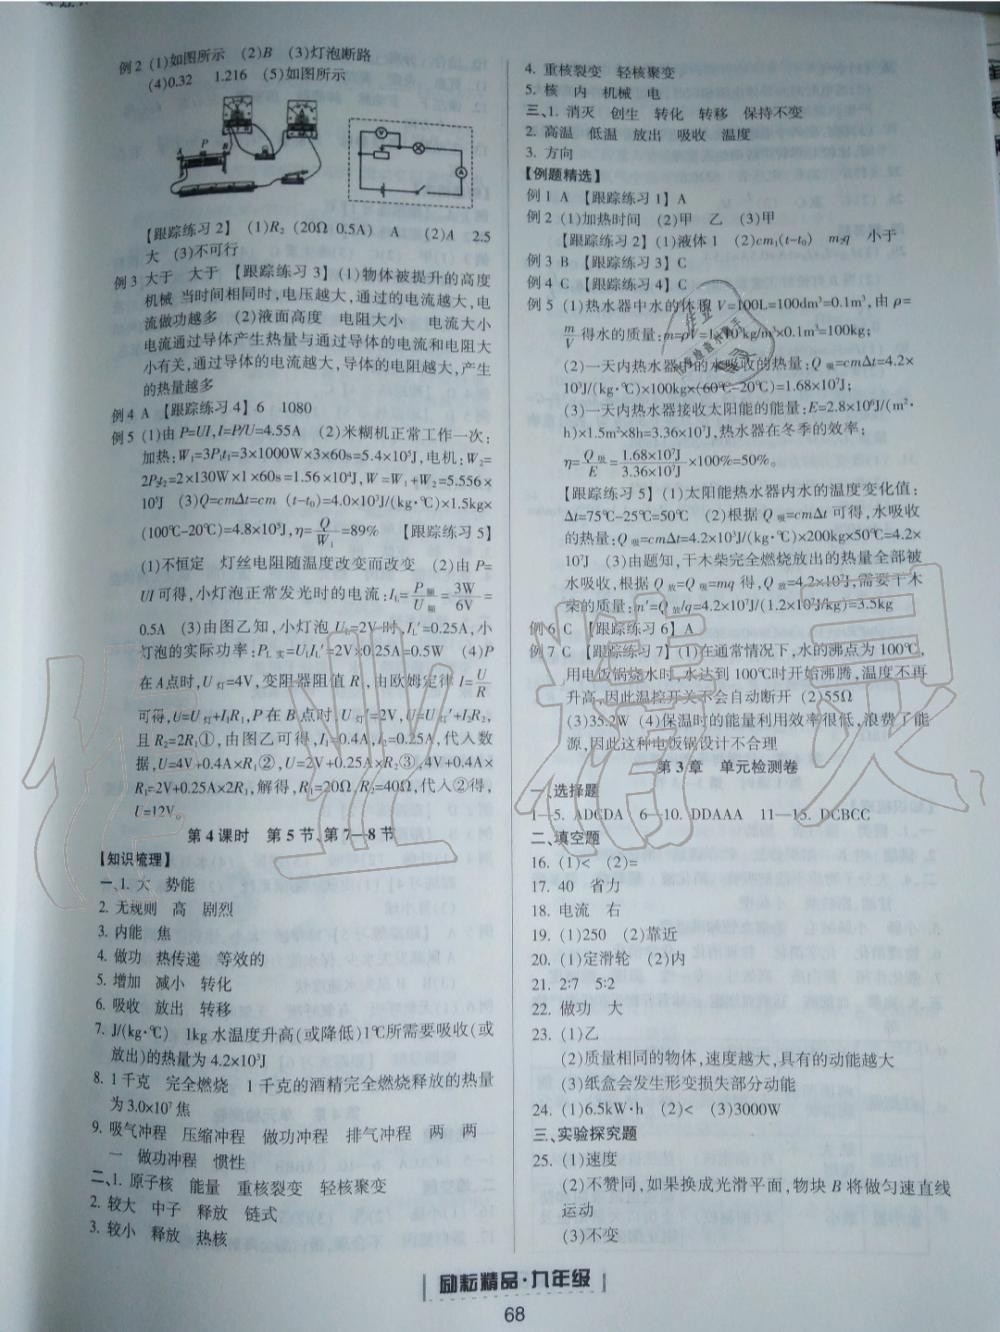 例2 (1)如图所示 (2)B (3)灯泡断路
(4)0.32 1.216 (5)如图所示
A P B
V
A
【跟踪练习2】 (1)R₂ (20Ω 0.5A) A (2)A 2.5
大 (3)不可行
例3 大于 大于 【跟踪练习3】(1)物体被提升的高度
机械 当时间相同时,电压越大,通过的电流越大,电
流做功越多 (2)液面高度 电阻大小 电流大小
电流通过导体产生热量与通过导体的电流和电阻大
小有关,通过导体的电流越大,导体的电阻越大,产生
的热量越多
例4 A 【跟踪练习4】6 1080
例5 (1)由P=UI,I=P/U=4.55A (2)米糊机正常工作一次:
加热:W₁=3P₁t₁=3×1000W×3×60s=5.4×10⁵J,电机:W₂=
2P₂t₂=2×130W×1×60s=1.56×10⁴J,W=W₁+W₂=5.556×
10⁵J (3)Q=cmΔt=cm (t-t₀)=4.0×10³J/(kg·℃)×1.5kg×
(100℃-20℃)=4.8×10⁵J,η=Q/W₁=89% 【跟踪练习5】
(1)不恒定 灯丝电阻随温度改变而改变 (2)由P=
UI可得,小灯泡正常发光时的电流:I_L=P额/U额=3W/6V=
0.5A (3)由图乙知,小灯泡U_L=2V时,I_L′=0.25A,小
灯泡的实际功率:P_L实=U_LI_L′=2V×0.25A=0.5W (4)P
在A点时,U灯=4V,变阻器阻值R₁,由欧姆定律I=U/R
可得,U=U灯+I₁R₁,P在B点时,U灯′=2V,U=U灯′+I₂R₂,
且R₂=2R₁①,由图乙可得,I₁=0.4A,I₂=0.25A,代入数
据,U=4V+0.4A×R₁②,U=2V+0.25A×R₂③,4V+0.4A×
R₁=2V+0.25A×2R₁,解得,R₁=20Ω,R₂=40Ω,代入②得,
U=12V。
第4课时 第5节、第7—8节
【知识梳理】
一、1. 大 势能
2. 无规则 高 剧烈
3. 内能 焦
4. 做功 热传递 等效的
5. 增加 减小 转化
6. 吸收 放出 转移
7. J/(kg·℃) 1kg水温度升高(或降低)1℃所需要吸收(或
放出)的热量为4.2×10³J
8. 1千克 完全燃烧 1千克的酒精完全燃烧释放的热量
为3.0×10⁷焦
9. 吸气冲程 压缩冲程 做功冲程 排气冲程 两 两
一 做功冲程 惯性
二、1. 原子核 能量 重核裂变 轻核聚变
2. 较大 中子 释放 链式
3. 较小 释放 热核
4. 重核裂变 轻核聚变
5. 核 内 机械 电
三、1. 消灭 创生 转化 转移 保持不变
2. 高温 低温 放出 吸收 温度
3. 方向
【例题精选】
例1 A 【跟踪练习1】A
例2 (1)加热时间 (2)甲 乙 (3)甲
【跟踪练习2】(1)液体1 (2)cm₁(t-t₀) m₂q 小于
例3 B 【跟踪练习3】C
例4 C 【跟踪练习4】C
例5 (1)热水器中水的体积V=100L=100dm³=0.1m³,由ρ=
m/V得水的质量:m=ρV=1×10³kg/m³×0.1m³=100kg;
(2)一天内热水器中的水吸收的热量:Q吸=cmΔt=4.2×
10³J/(kg·℃)×100kg×(60℃-20℃)=1.68×10⁷J;
(3)一天内热水器接收太阳能的能量:E=2.8×10⁶J/(m²·
h)×1.5m²×8h=3.36×10⁷J,热水器在冬季的效率:
η=Q吸/E=1.68×10⁷J/3.36×10⁷J×100%=50%。
【跟踪练习5】(1)太阳能热水器内水的温度变化值:
Δt=75℃-25℃=50℃ (2)根据Q吸=cmΔt可得,水吸收
的热量:Q吸=cmΔt=4.2×10³J/(kg·℃)×200kg×50℃=4.2×
10⁷J (3)由题知,干木柴完全燃烧放出的热量全部被
水吸收,根据Q放=Q吸=mq得,Q放=4.2×10⁷J,需要干木
柴的质量:m′=Q放/q=4.2×10⁷J/(1.2×10⁷J/kg)=3.5kg
例6 C 【跟踪练习6】A
例7 C 【跟踪练习7】(1)在通常情况下,水的沸点为100℃,
用电饭锅烧水时,水达到100℃时开始沸腾,温度不再
升高,因此温控开关不会自动断开 (2)55Ω
(3)35.2W (4)保温时的能量利用效率很低,浪费了能
源,因此这种电饭锅设计不合理
第3章 单元检测卷
一、选择题
1—5. ADCDA 6—10. DDAAA 11—15. DCBCC
二、填空题
16. (1)< (2)=
17. 40 省力
18. 电流 右
19. (1)250 (2)靠近
20. (1)定滑轮 (2)内
21. 2:7 5:2
22. 做功 大
23. (1)乙
(2)质量相同的物体,速度越大,具有的动能越大
(3)纸盒会发生形变损失部分动能
24. (1)6.5kW·h (2)< (3)3000W
三、实验探究题
25. (1)速度
(2)不赞同,如果换成光滑平面,物块B将做匀速直线
运动
(3)不变
励耘精品·九年级
68
作业精灵